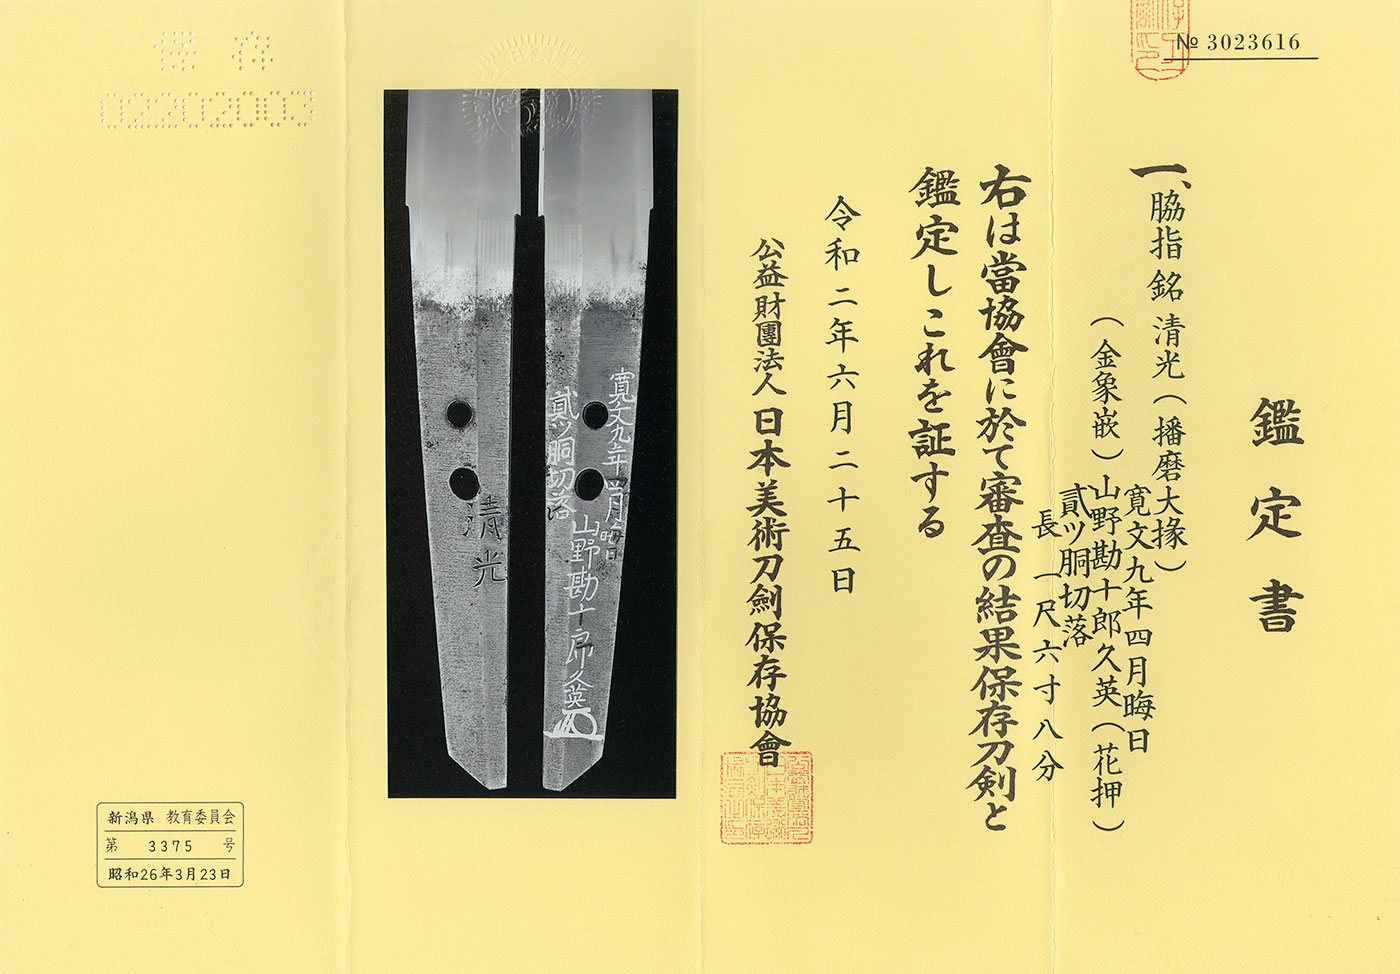 № 3023616
鑑定書
一、脇指 銘 清光（播磨大掾）
（金象嵌）寛文九年四月晦日
山野勘十郎久英（花押）
貳ツ胴切落
長 一尺六寸八分
右は當協會に於て審査の結果保存刀剣と
鑑定しこれを証する
令和二年六月二十五日
公益財團法人 日本美術刀劍保存協會
寛文九年四月晦日
山野勘十郎久英
貳ツ胴切落
清光
保存
02202003
新潟県 教育委員会
第 3375 号
昭和26年3月23日